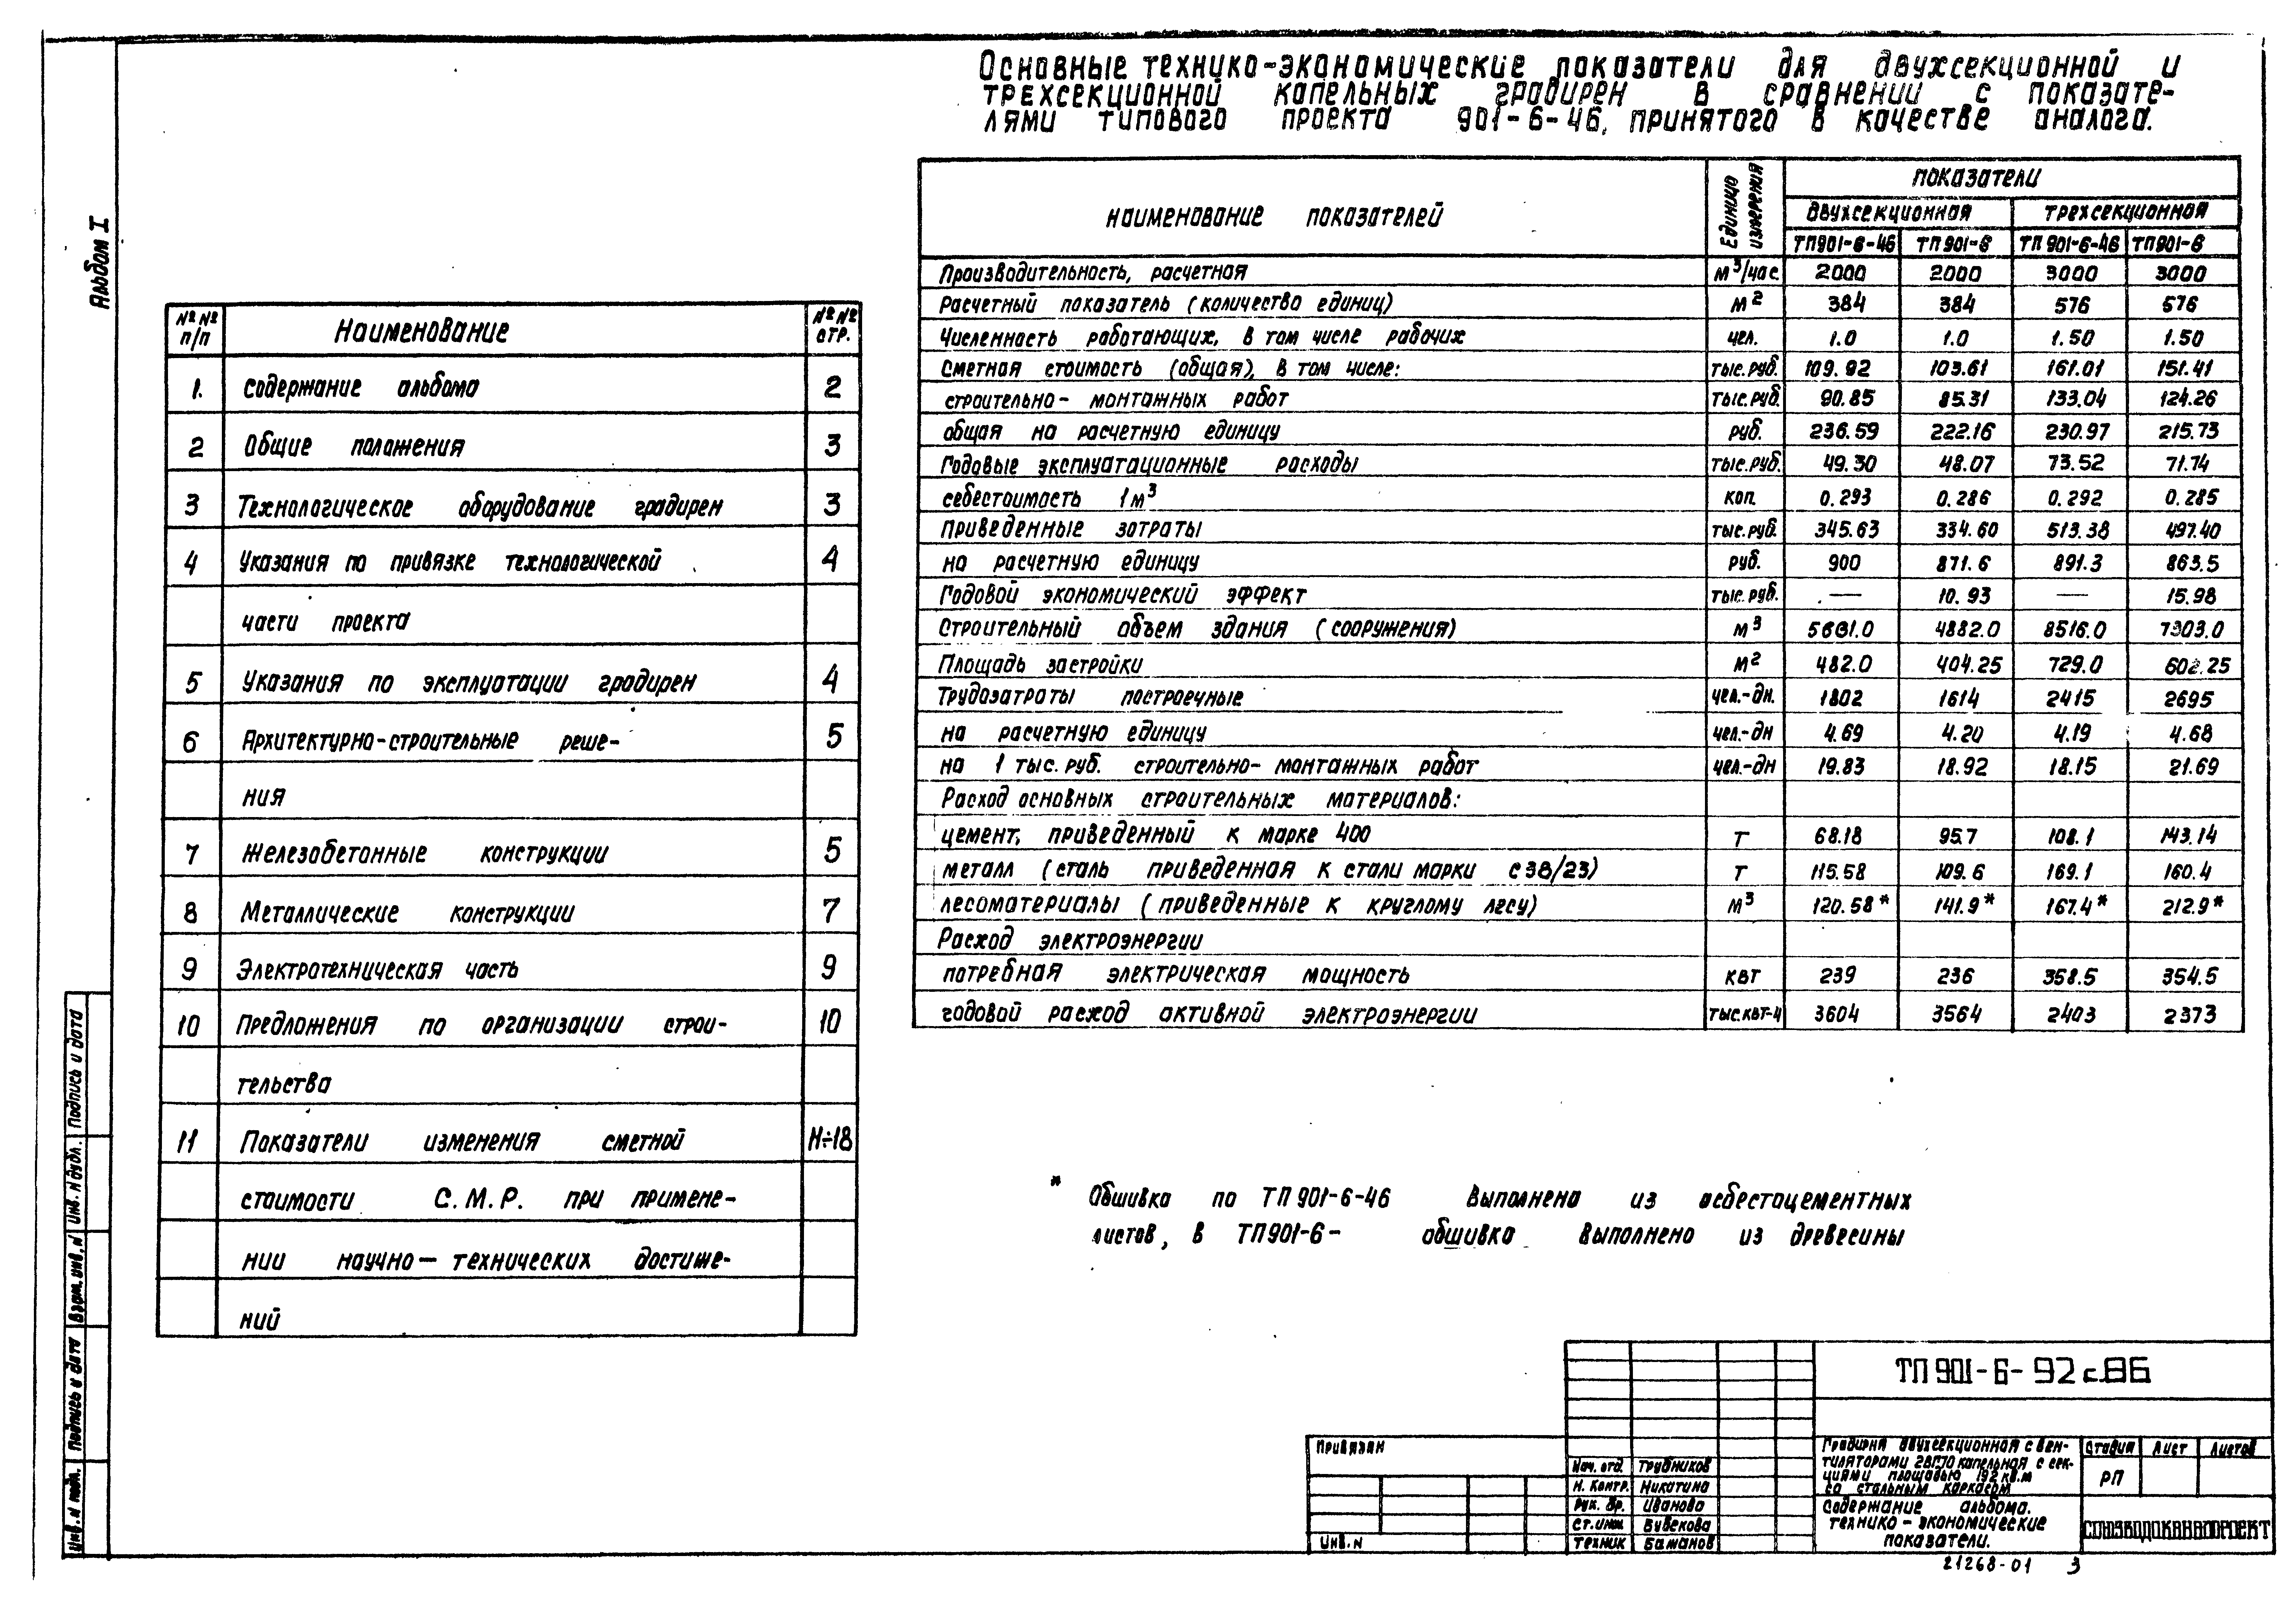 Основные технико-экономические показатели для двухсекционной и
трехсекционной капельных градирен в сравнении с показате-
лями типового проекта 901-6-46, принятого в качестве аналога.
Альбом I
№№ п/п Наименование №№ стр.
1. Содержание альбома 2
2 Общие положения 3
3 Технологическое оборудование градирен 3
4 Указания по привязке технологической 4
части проекта
5 Указания по эксплуатации градирен 4
6 Архитектурно-строительные реше- 5
ния
7 Железобетонные конструкции 5
8 Металлические конструкции 7
9 Электротехническая часть 9
10 Предложения по организации строи- 10
тельства
11 Показатели изменения сметной 11÷18
стоимости С.М.Р. при примене-
нии научно-технических достиже-
ний
наименование показателей Единица измерения показатели
двухсекционная трехсекционная
ТП901-6-46 ТП901-6 ТП901-6-46 ТП901-6
Производительность, расчетная м³/час. 2000 2000 3000 3000
Расчетный показатель (количество единиц) м² 384 384 576 576
Численность работающих, в том числе рабочих чел. 1.0 1.0 1.50 1.50
Сметная стоимость (общая), в том числе: тыс.руб. 109.92 103.61 161.01 151.41
строительно-монтажных работ тыс.руб. 90.85 85.31 133.04 124.26
общая на расчетную единицу руб. 236.59 222.16 230.97 215.73
Годовые эксплуатационные расходы тыс.руб. 49.30 48.07 73.52 71.74
себестоимость 1м³ коп. 0.293 0.286 0.292 0.285
Приведенные затраты тыс.руб. 345.63 334.60 513.38 497.40
на расчетную единицу руб. 900 871.6 891.3 863.5
Годовой экономический эффект тыс.руб. — 10.93 — 15.98
Строительный объем здания (сооружения) м³ 5681.0 4882.0 8516.0 7303.0
Площадь застройки м² 482.0 404.25 729.0 602.25
Трудозатраты построечные чел.-дн. 1802 1614 2415 2695
на расчетную единицу чел.-дн 4.69 4.20 4.19 4.68
на 1 тыс.руб. строительно-монтажных работ чел.-дн 19.83 18.92 18.15 21.69
Расход основных строительных материалов:
цемент, приведенный к марке 400 т 68.18 95.7 108.1 143.14
металл (сталь приведенная к стали марки с38/23) т 115.58 109.6 169.1 160.4
лесоматериалы (приведенные к круглому лесу) м³ 120.58* 141.9* 167.4* 212.9*
Расход электроэнергии
потребная электрическая мощность квт 239 236 358.5 354.5
годовой расход активной электроэнергии тыс.квт-ч 3604 3564 2403 2373
* Обшивка по ТП901-6-46 выполнена из асбестоцементных
листов, в ТП901-6- обшивка выполнено из древесины
Подпись и дата
Инв. № дубл.
Взам. инв. №
Подпись и дата
Инв. № подл.
ТП901-6-92с.86
Привязан
Инв. №
Нач. отд. Трубников
Н. контр. Никитина
Рук. бр. Иванова
Ст. инж Бубекова
Техник Бажанов
Градирня двухсекционная с вен-
тиляторами 2ВГ70 капельная с сек-
циями площадью 192 кв.м
со стальным каркасом
Стадия Лист Листов
РП
Содержание альбома.
технико-экономические
показатели.
СОЮЗВОДОКАНАЛПРОЕКТ
21268-01 3